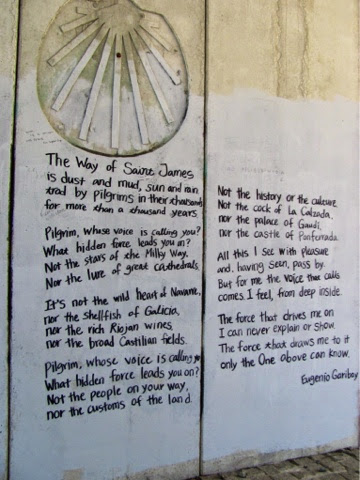 The Way of Saint James
is dust and mud, sun and rain
trod by pilgrims in their thousands
for more than a thousand years
Pilgrim, whose voice is calling you?
What hidden force leads you on?
Not the stars of the Milky Way,
Nor the lure of great cathedrals.
It's not the wild heart of Navarre,
nor the shellfish of Galicia,
nor the rich Riojan wines
nor the broad Castilian fields.
Pilgrim, whose voice is calling you
What hidden force leads you on?
Not the people on your way,
nor the customs of the land.
Not the history or the culture
Not the cock of La Calzada,
nor the palace of Gaudi,
nor the castle of Ponferrada.
All this I see with pleasure
and, having seen, pass by
But for me the voice that calls
comes, I feel, from deep inside.
The force that drives me on
I can never explain or show
The force that draws me to it
only the One above can know.
Eugenio Garibay